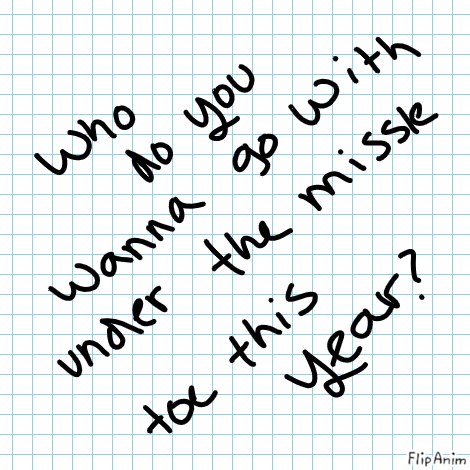 Who do you
wanna go with
under the missle
toe this year?
FlipAnim